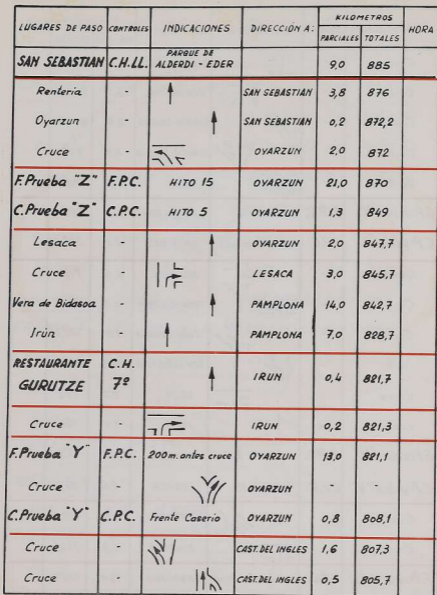 LUGARES DE PASO CONTROLES INDICACIONES DIRECCIÓN A: KILOMETROS HORA
PARCIALES TOTALES
SAN SEBASTIAN C.H.LL. PARQUE DE ALDERDI - EDER 9,0 885
Rentería - SAN SEBASTIAN 3,8 876
Oyarzun - SAN SEBASTIAN 0,2 872,2
Cruce - OYARZUN 2,0 872
F.Prueba "Z" F.P.C. HITO 15 OYARZUN 21,0 870
C.Prueba "Z" C.P.C. HITO 5 OYARZUN 1,3 849
Lesaca - OYARZUN 2,0 847,7
Cruce - LESACA 3,0 845,7
Vera de Bidasoa - PAMPLONA 14,0 842,7
Irún - PAMPLONA 7,0 828,7
RESTAURANTE GURUTZE C.H. 7º IRUN 0,4 821,7
Cruce - IRUN 0,2 821,3
F.Prueba "Y" F.P.C. 200 m. antes cruce OYARZUN 13,0 821,1
Cruce - OYARZUN - -
C.Prueba "Y" C.P.C. Frente Caserio OYARZUN 0,8 808,1
Cruce - CAST. DEL INGLES 1,6 807,3
Cruce - CAST. DEL INGLES 0,5 805,7